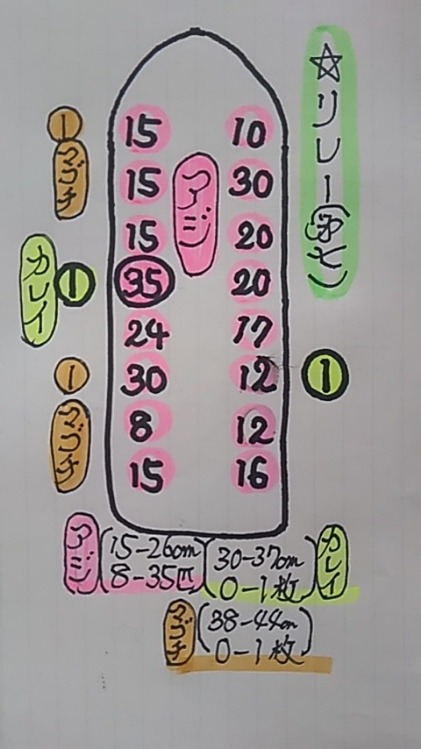 ☆リレー(第七)
アジ
15 10
① マゴチ 15 30
15 20
カレイ ① 35 20
24 17
① マゴチ 30 12 ①
8 12
15 16
アジ(15-26cm 8-35匹)
(30-37cm 0-1枚)カレイ
マゴチ(38-44cm 0-1枚)